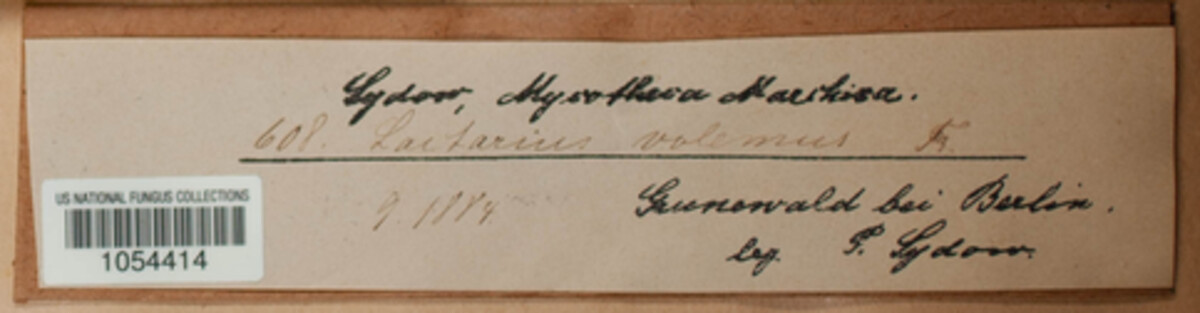 Sydow, Mycotheca Marchica.
608. Lactarius volemus Fr.
9. 1884
Grunewald bei Berlin.
leg. P. Sydow.
US NATIONAL FUNGUS COLLECTIONS
1054414